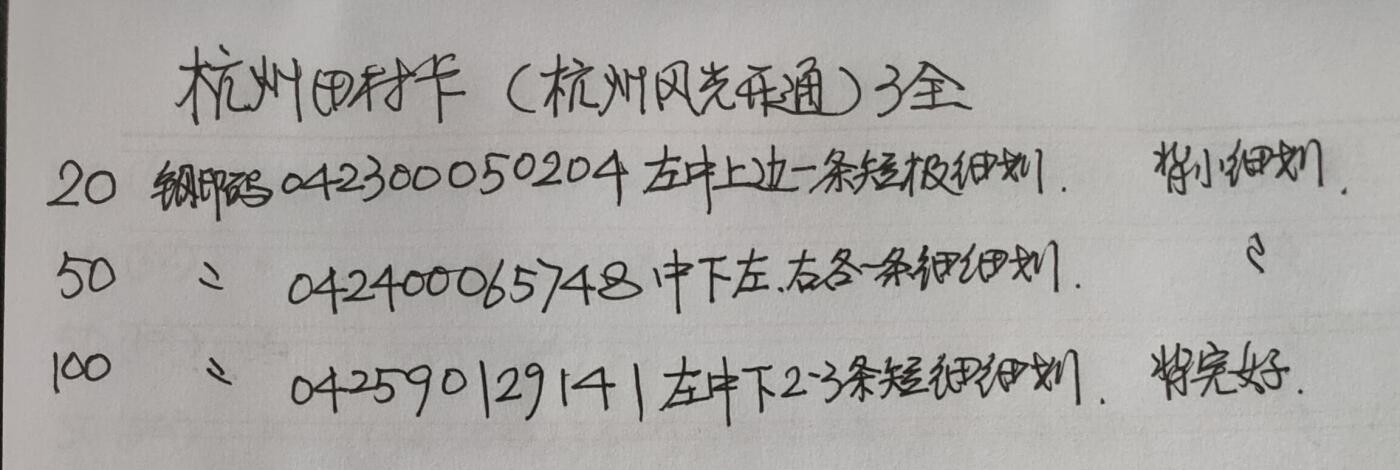 杭州田村卡（杭州风光开通）3全
20 钢印码042300050204左中上边一条短极细划. 背小细划.
50 〃 042400065748中下左.右各一条细细划. 〃
100 〃 042590129141左中下2-3条短细细划. 背完好.